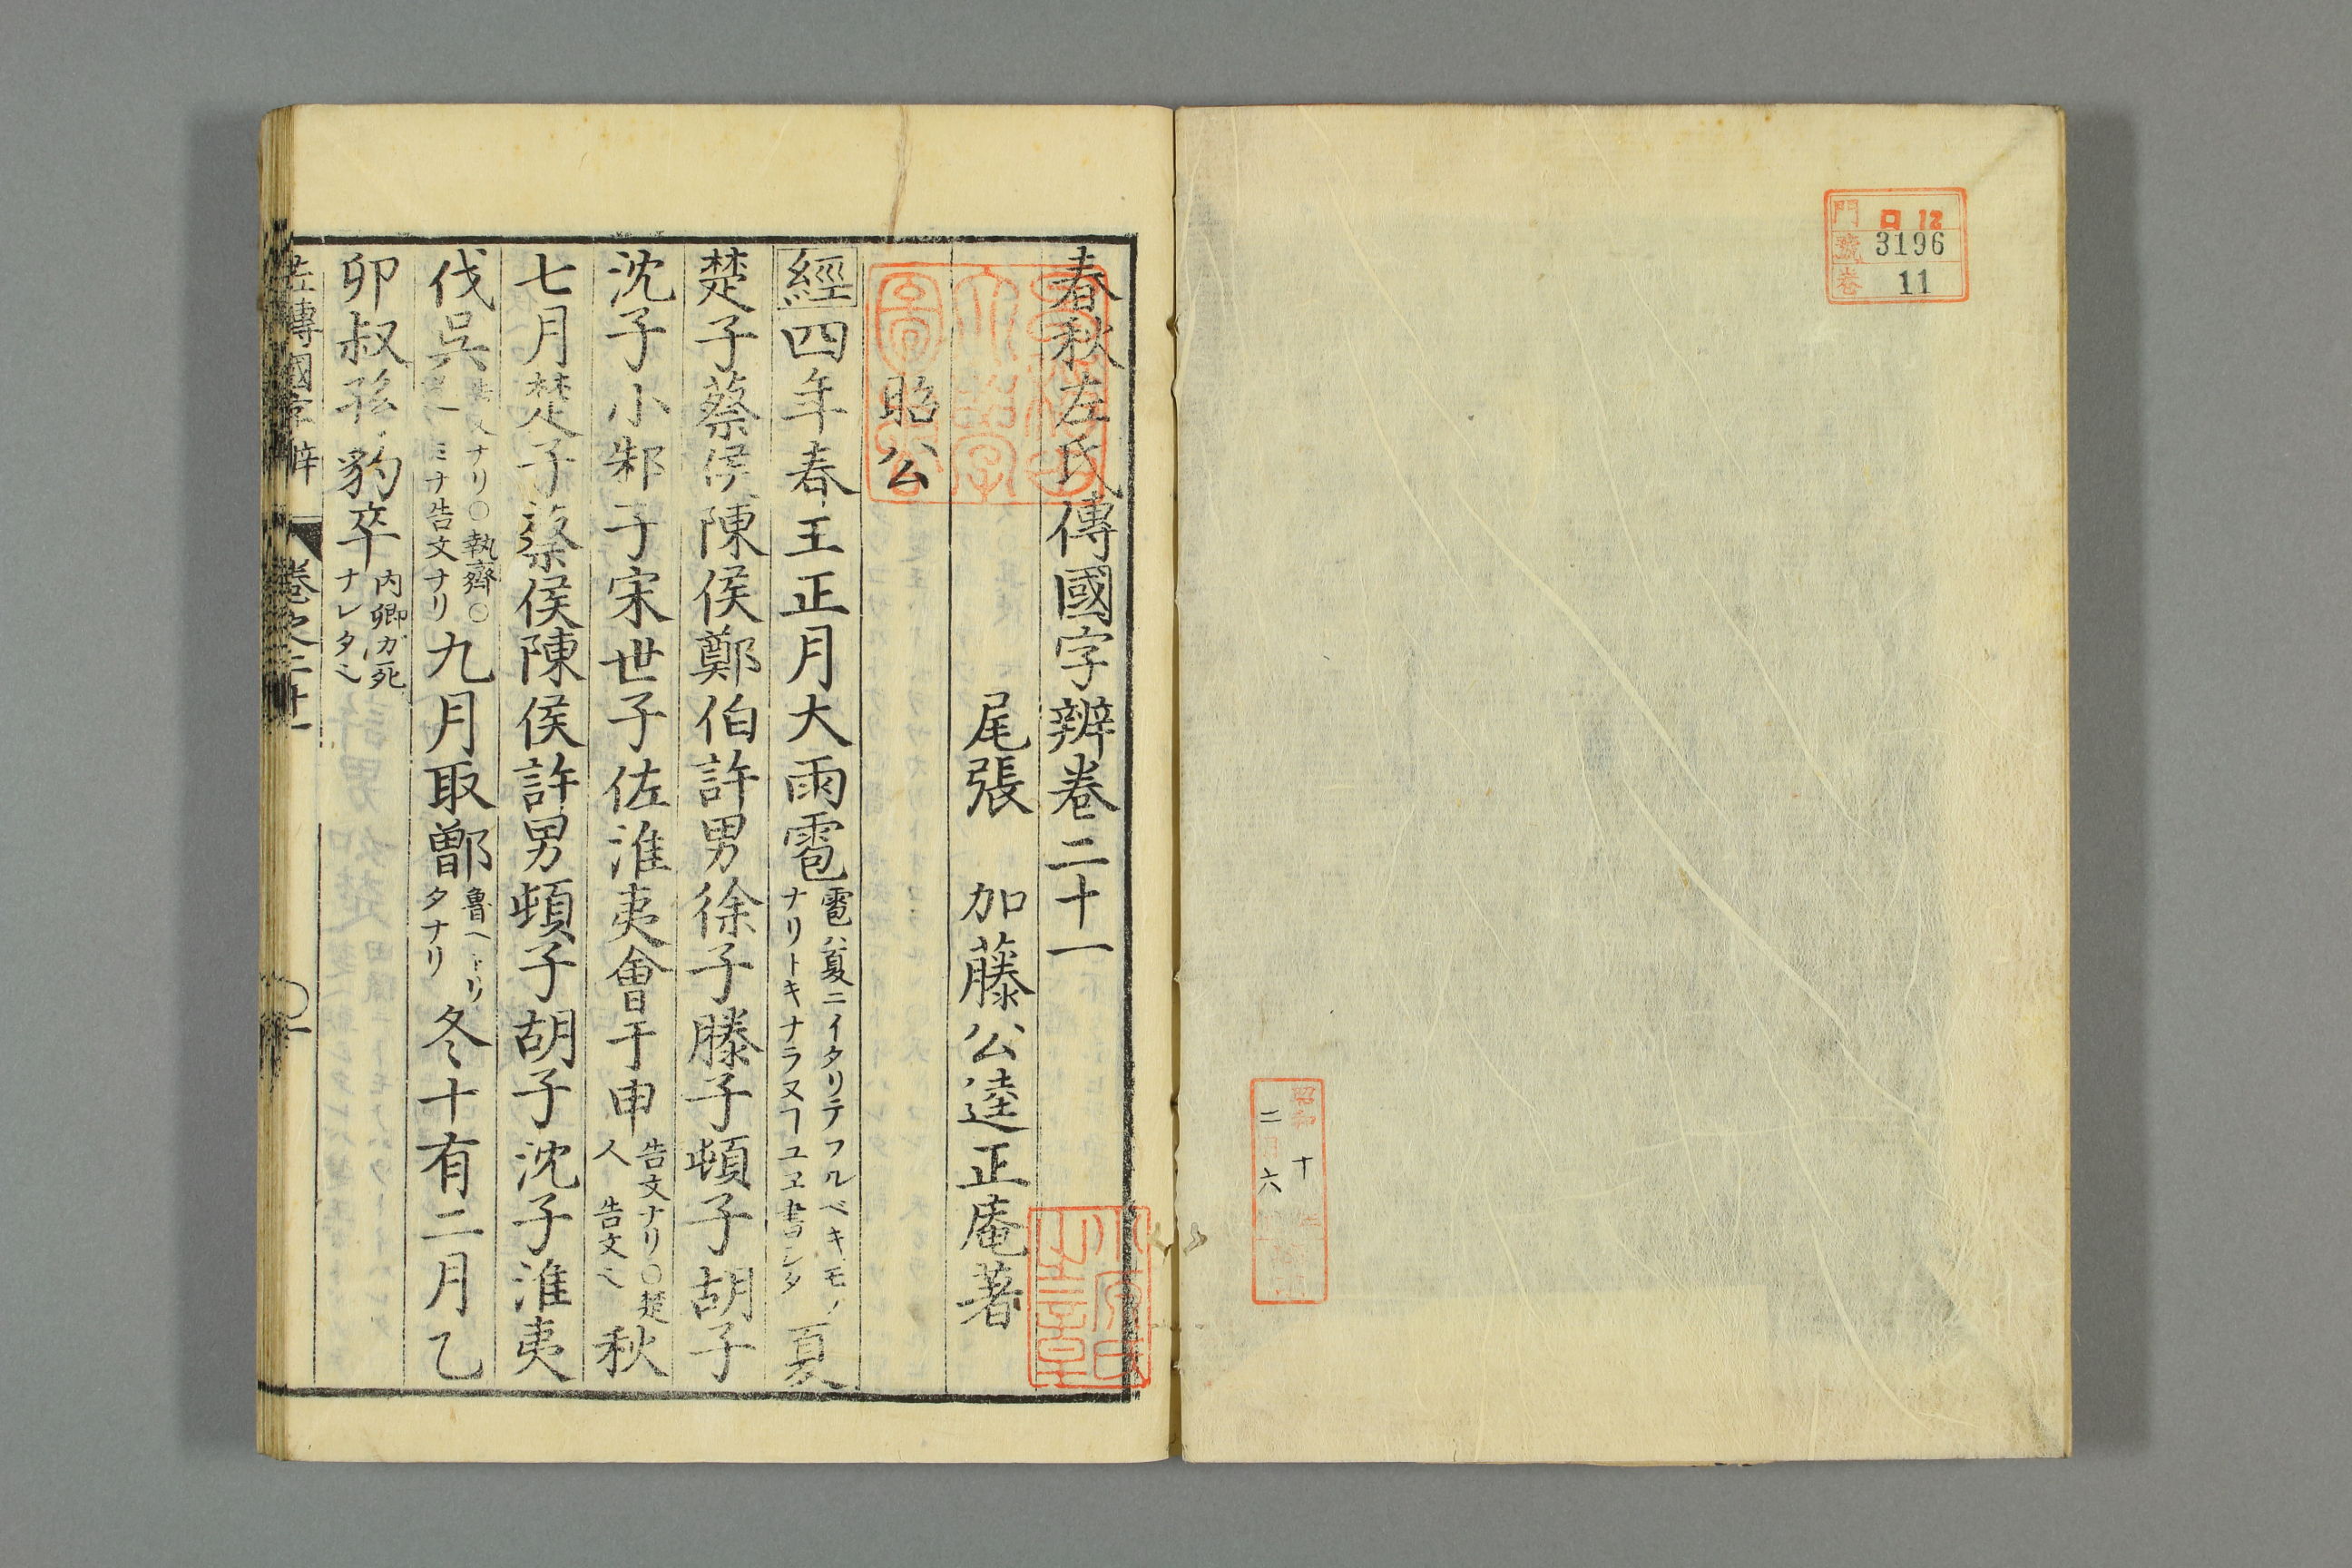 門 ロ 12
號 3196
卷 11
昭和十
二月六
春秋左氏傳國字辨卷二十一
尾張 加藤公逵正庵著
昭公
經四年春王正月大雨雹
雹ハ夏ニイタリテフルベキモノ
ナリトキナラヌヿユヱ書シタ
夏
楚子蔡侯陳侯鄭伯許男徐子滕子頓子胡子
沈子小邾子宋世子佐淮夷會于申
告文ナリ〇楚
人 告文〻
秋
七月楚子蔡侯陳侯許男頓子胡子沈子淮夷
伐吳
文ナリ〇執齊〇
ミナ告文ナリ
九月取鄫
魯ヘトリ
タナリ
冬十有二月乙
卯叔孫豹卒
內卿ガ死
ナレタ〻
左傳國字辨 卷之二十一 〇一